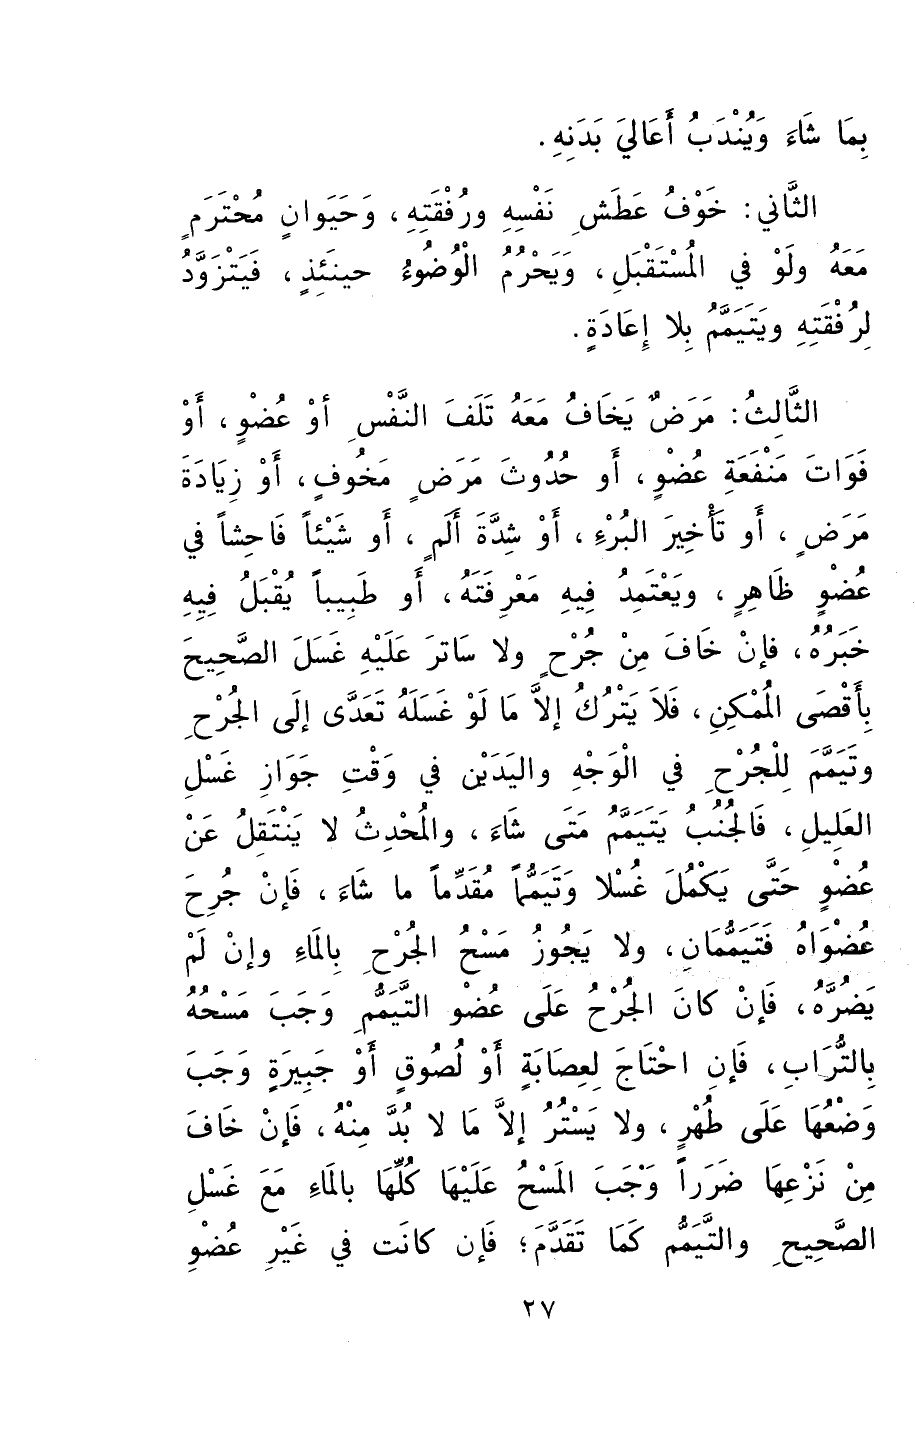 بِمَا شَاءَ وَيُنْدَبُ أَعَاليَ بَدَنِهِ .
الثَّاني: خَوْفُ عَطَشِ نَفْسِهِ ورُفْقَتِهِ ، وَحَيَوانٍ مُحْتَرَمٍ
مَعَهُ ولَوْ في المُسْتَقْبَلِ ، وَيَحْرُمُ الْوُضُوءُ حينَئِذٍ ، فَيَتَزَوَّدُ
لِرُفْقَتِهِ ويَتَيَمَّمُ بِلا إِعَادَةٍ .
الثَّالِثُ: مَرَضٌ يَخَافُ مَعَهُ تَلَفَ النَّفْسِ أوْ عُضْوٍ ، أَوْ
فَوَاتَ مَنْفَعَةِ عُضْوٍ ، أَو حُدُوثَ مَرَضٍ مَخُوفٍ ، أَوْ زِيَادَةَ
مَرَضٍ ، أَو تَأْخِيرَ البُرْءِ ، أَوْ شِدَّةَ أَلَمٍ ، أَو شَيْئاً فَاحِشاً في
عُضْوٍ ظَاهِرٍ ، ويَعْتَمِدُ فِيهِ مَعْرِفَتَهُ ، أَو طَبِيباً يُقْبَلُ فِيهِ
خَبَرُهُ ، فإنْ خَافَ مِنْ جُرْحٍ ولا سَاتَرَ عَلَيْهِ غَسَلَ الصَّحِيحَ
بِأَقْصَى المُمْكِنِ ، فَلاَ يَتْرُكُ إلاَّ مَا لَوْ غَسَلَهُ تَعَدَّى إلَى الجُرْحِ
وتَيَمَّمَ لِلْجُرْحِ في الْوَجْهِ واليَدَيْنِ في وَقْتِ جَوَازِ غَسْلِ
العَلِيلِ ، فَالجُنُبُ يَتَيَمَّمُ مَتَى شَاءَ ، والمُحْدِثُ لا يَنْتَقِلُ عَنْ
عُضْوٍ حَتَّى يَكْمُلَ غُسْلا وَتَيَمُّماً مُقَدِّماً ما شَاءَ ، فَإنْ جُرِحَ
عُضْوَاهُ فَتَيَمُّمَانِ ، ولا يَجُوزُ مَسْحُ الجُرْحِ بِالمَاءِ وإنْ لَمْ
يَضُرَّهُ ، فَإنْ كانَ الجُرْحُ عَلَى عُضْوِ التَّيَمُّمِ وَجَبَ مَسْحُهُ
بِالتُّرَابِ ، فَإنِ احْتَاجَ لِعِصَابَةٍ أَوْ لُصُوقٍ أَوْ جَبِيرَةٍ وَجَبَ
وَضْعُهَا عَلَى طُهْرٍ ، ولا يَسْتُرُ إلاَّ مَا لا بُدَّ مِنْهُ ، فَإنْ خَافَ
مِنْ نَزْعِهَا ضَرَراً وَجَبَ المَسْحُ عَلَيْهَا كُلِّهَا بالمَاءِ مَعَ غَسْلِ
الصَّحِيحِ والتَّيَمُّمِ كَمَا تَقَدَّمَ؛ فَإن كانَت في غَيْرِ عُضْوِ
٢٧